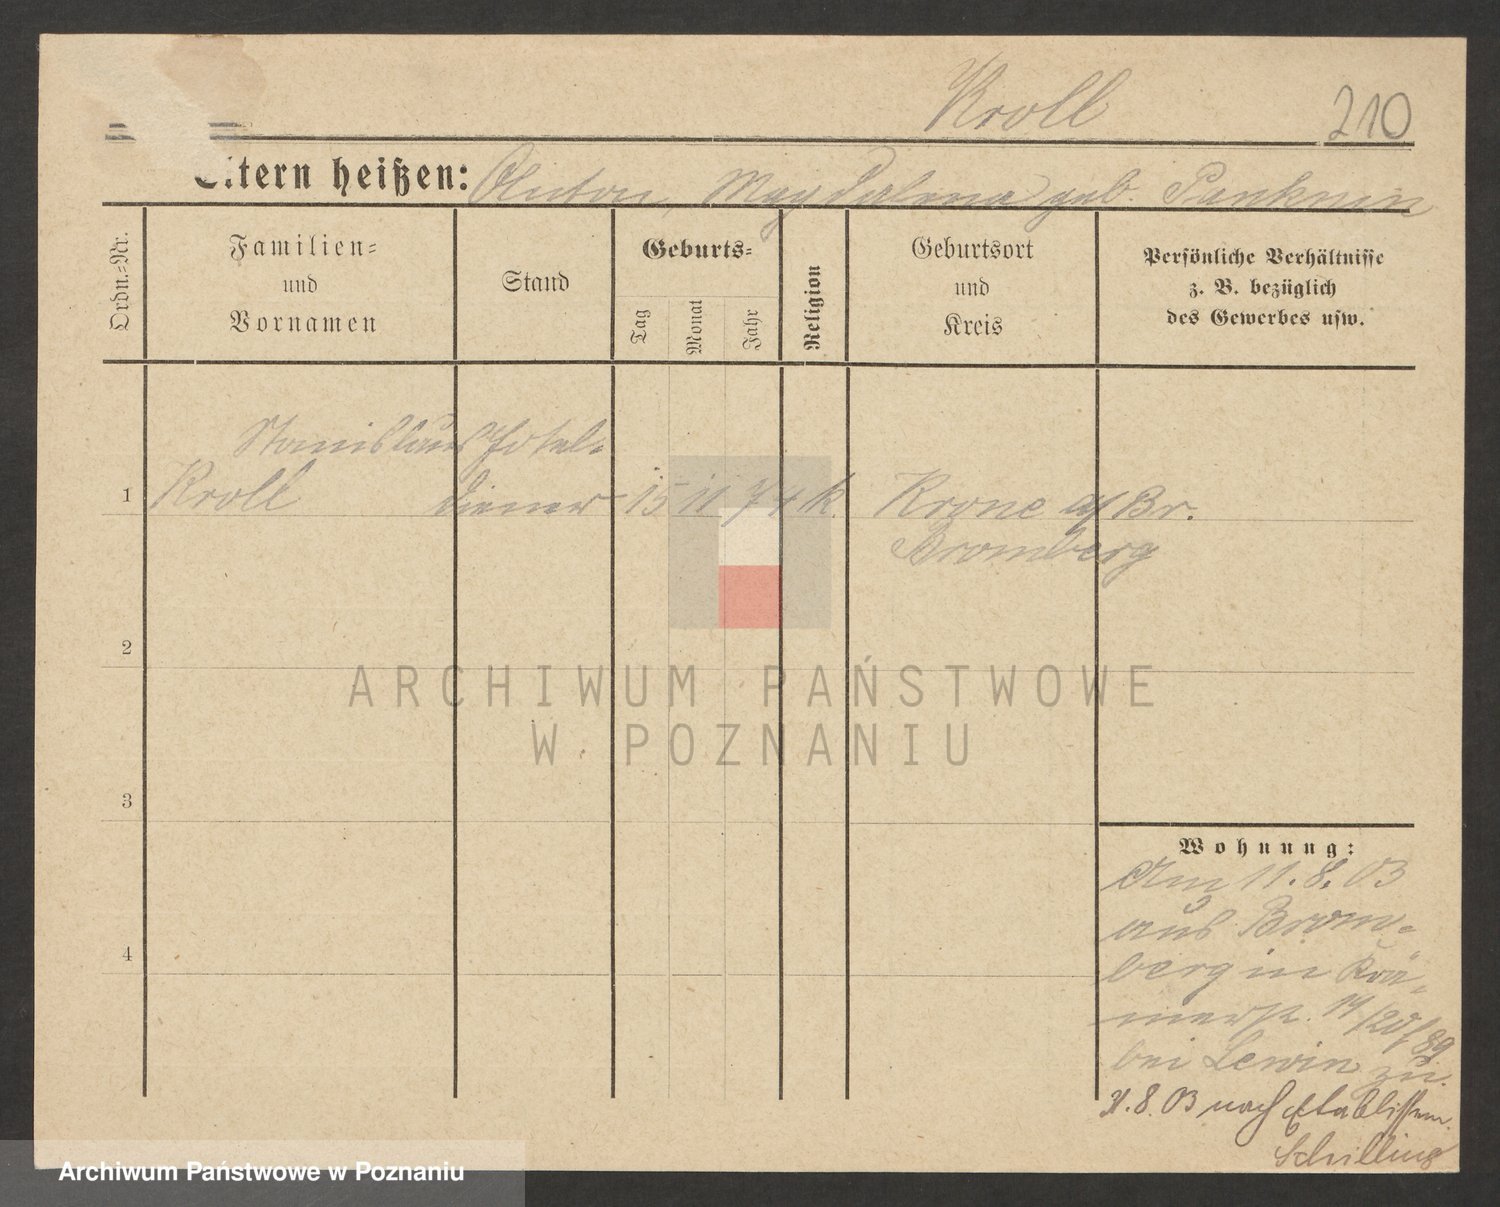 Kroll
210
Eltern heißen: Anton, Magdalena geb. Panknin
Ordn.-Nr.
Familien-
und
Vornamen
Stand
Geburts-
Tag
Monat
Jahr
Religion
Geburtsort
und
Kreis
Persönliche Verhältnisse
z. B. bezüglich
des Gewerbes usw.
Stanislaus Hotel-
1 Kroll diener 15 11 74 k. Krone a/Br.
Bromberg
2
3
4
Wohnung:
Am 11.8.03
aus Brom-
berg in Krä-
merstr. 19/20/89
bei Lewin zu.
31.8.03 nach Etablissem.
Schilling
ARCHIWUM PAŃSTWOWE
W POZNANIU
Archiwum Państwowe w Poznaniu